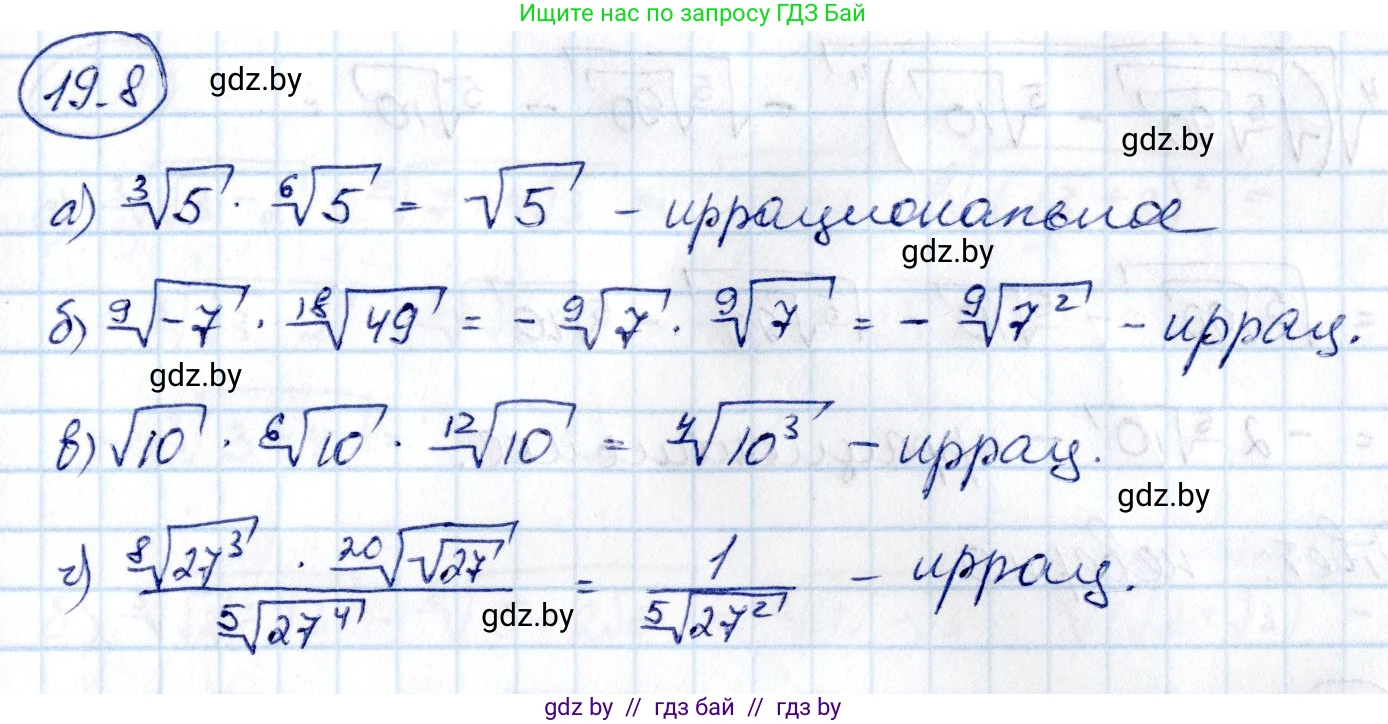 Ищите нас по запросу ГДЗ Бай
19.8 gdz.by
gdz.by
а) ∛5 · ⁶√5 = √5 - иррациональное
gdz.by
б) ⁹√-7 · ¹⁸√49 = - ⁹√7 · ⁹√7 = - ⁹√7² - иррац.
gdz.by
в) √10 · ⁶√10 · ¹²√10 = ⁴√10³ - иррац.
gdz.by
г) (⁸√27³ · ²⁰√√27) / ⁵√27⁴ = 1 / ⁵√27² - иррац.
gdz.by
gdz by // гдз бай // гдз by